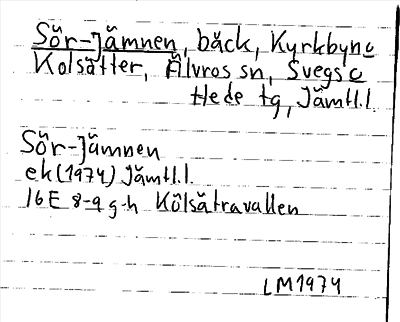 Sör-Jämnen, bäck, Kyrkbyn o
Kolsätter, Älvros sn, Svegs o
Hede tg, Jämtl.l.
Sör-Jämnen
ek (1974) Jämtl.l.
16E 8-9 g-h Kölsätravallen
LM1974